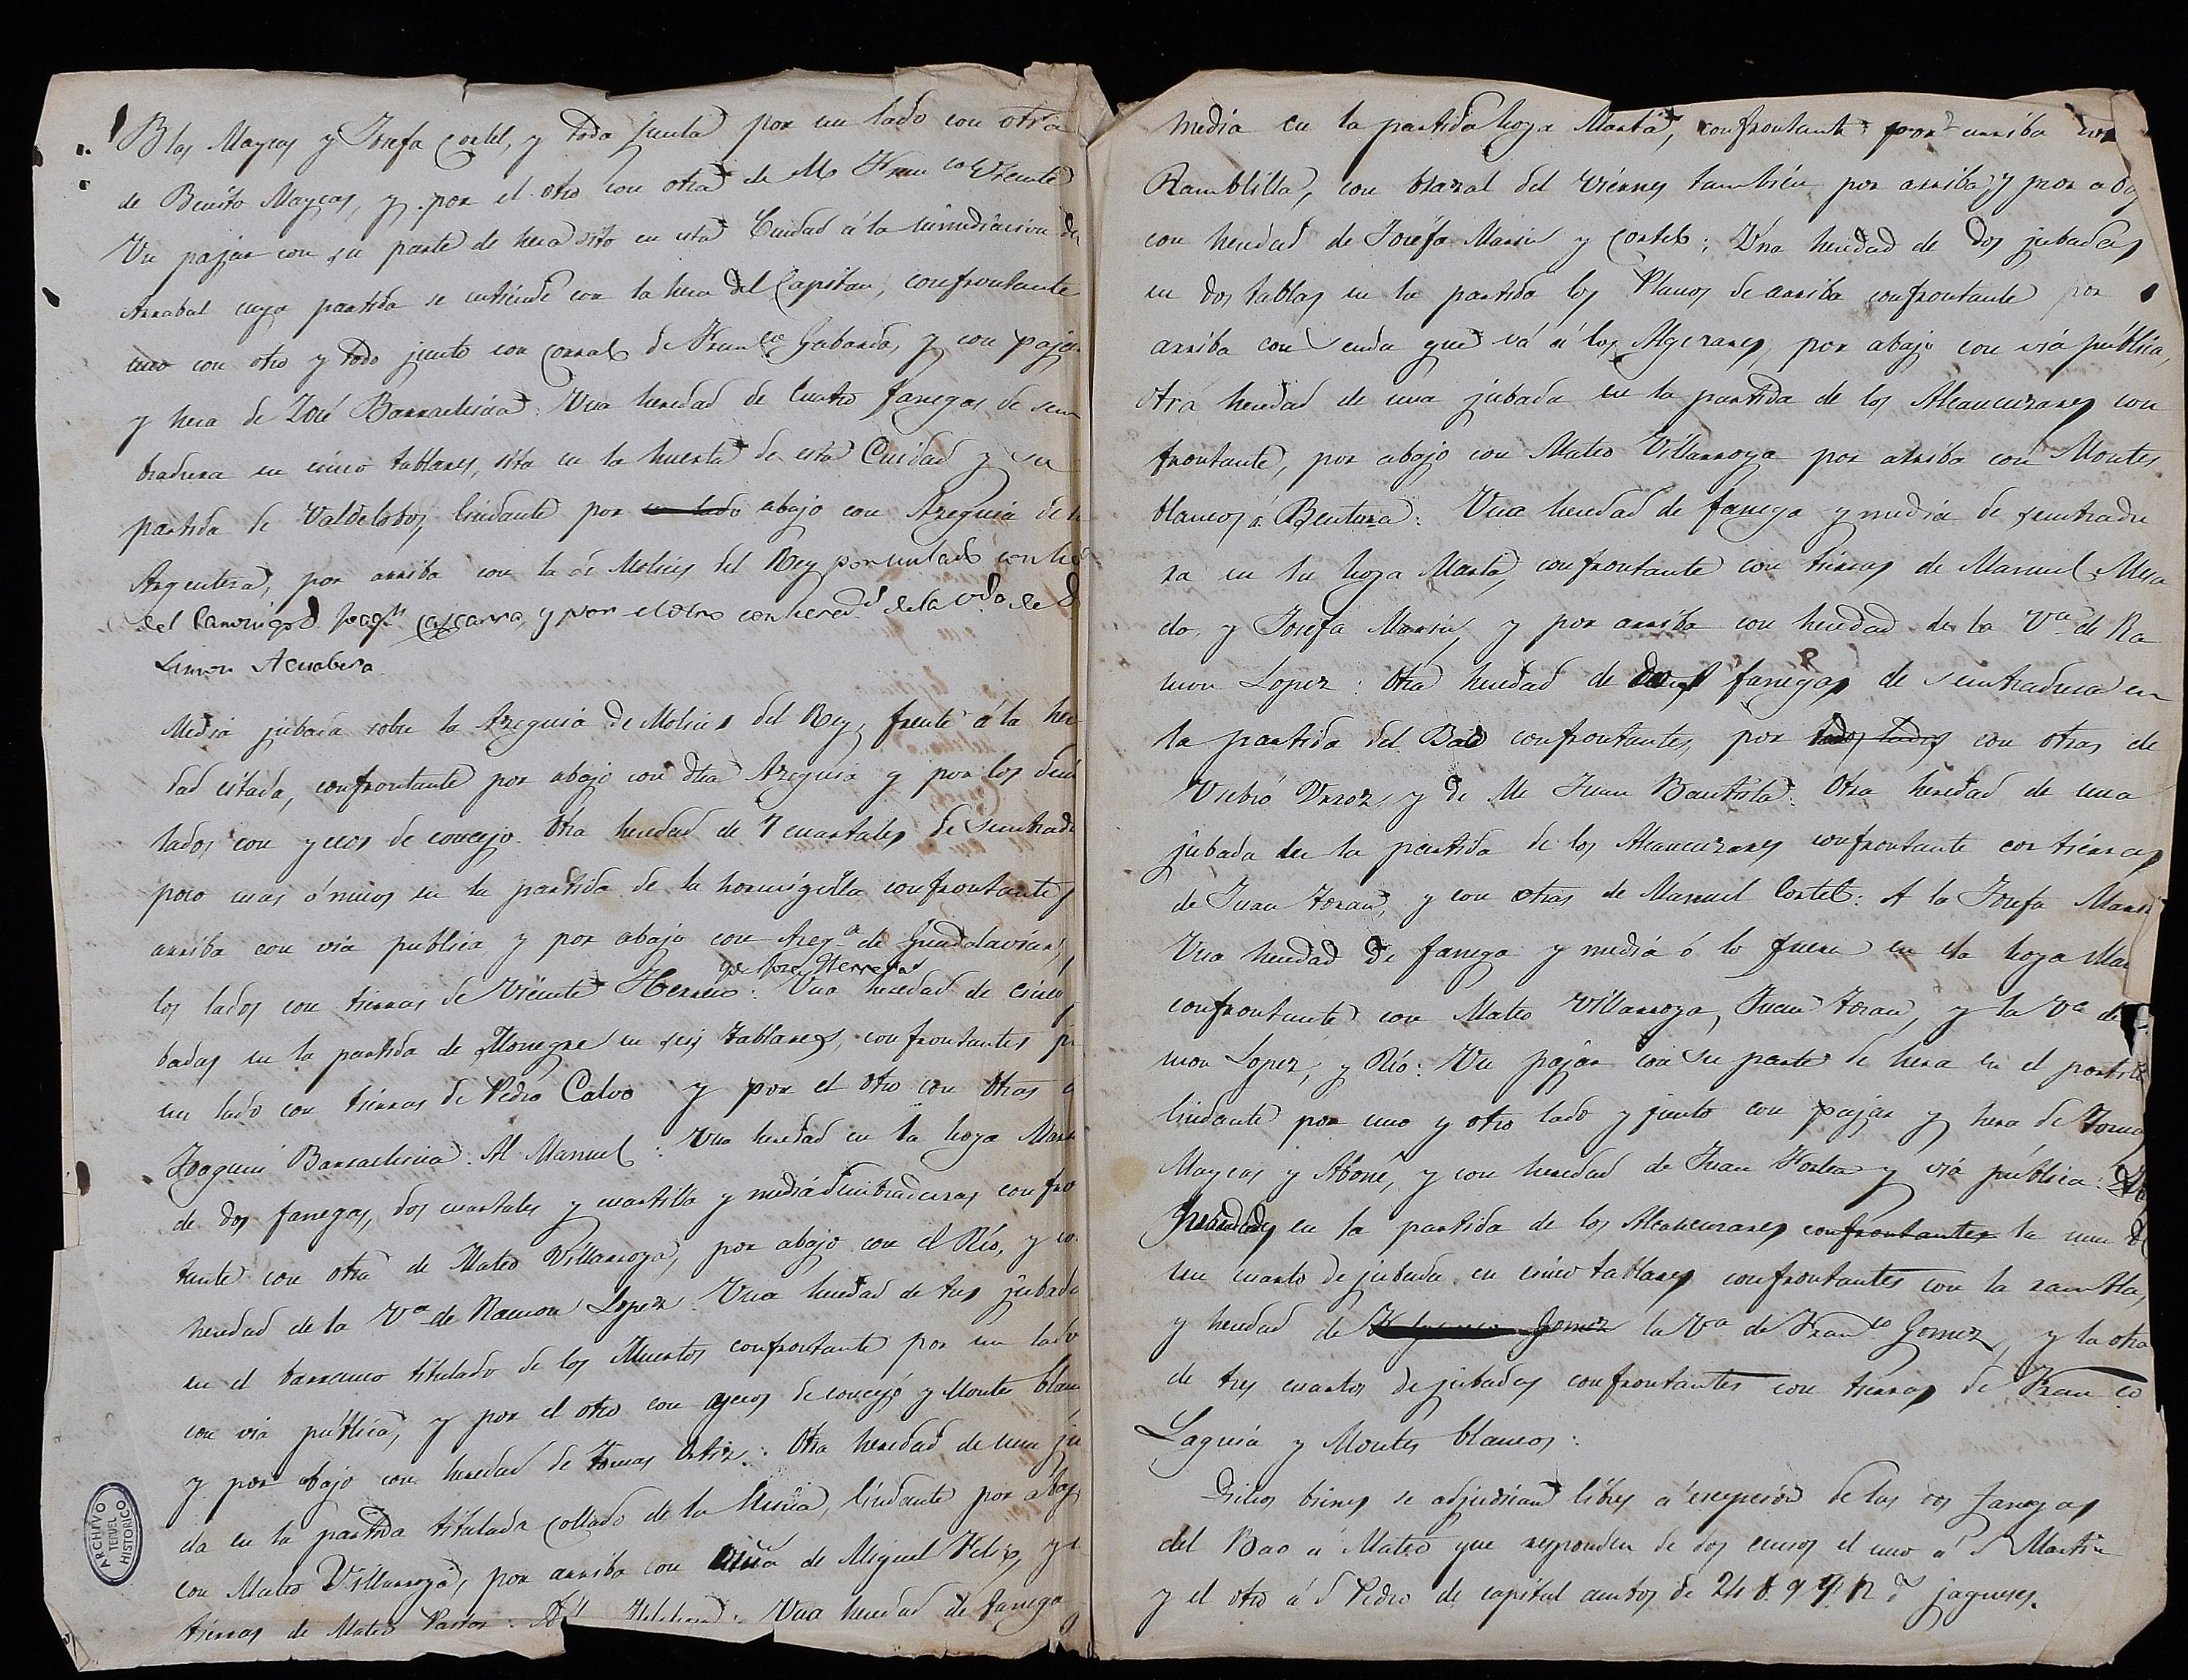 Blas Maycas y Josefa Cortel, y toda junta por un lado con otra
de Benito Maycas, y por el otro con otra de M Fran co Vicente
Un pajar con su parte de hera sito en esta Ciudad á la inmediacion del
Arrabal cuya partida se entiende con la hera del Capitan, confrontante
uno con otro y todo junto con corral de Fran co Gabarda, y con pajar
y hera de José Barrachina: Una heredad de Cuatro fanegas de sem
bradura en cinco tablares, sita en la huerta de esta Ciudad y su
partida de Valdelobos, lindante por un lado abajo con Azequia de la
Argentera, por arriba con la de Molins del Rey por un lado con he
del Canonigo D. Joaqn Cascarra, y por el otro con hered d de la vda de D
Simon Acuabera.
Media jubada sobre la Azequia de Molins del Rey, frente á la here
dad citada, confrontante por abajo con dha Azequia y por los demas
lados con yecos de concejo. Otra heredad de 7 cuartales de sembrad
poco mas ó menos en la partida de la hormigilla confrontante p
arriba con via publica y por abajo con Azeq.a de Guadalaviar,
q de José Herrera
los lados con tierras de Vicente Herrero: Una heredad de cinco
badas en la partida de Monegre en seis tablares, confrontantes p
un lado con tierras de Pedro Calvo y por el otro con otras
Joaquin Barrachina. Al Manuel: Una heredad en la hoya Marta
de dos fanegas, dos cuartales y cuartilla y media sembraduras, confron
tante con otra de Mateo Villarroya, por abajo con el Rio, y con
heredad de la Va de Ramon Lopez. Una heredad de tres jubada
en el barranco titulado de los Muertos confrontante por un lado
con via publica, y por el otro con yecos de concejo y Montes blan
y por abajo con heredad de Tomas Ortiz: Otra heredad de una ju
da en la partida titulada collado de la Musica, lindante por abajo
con Mateo Villarroya, por arriba con viña de Miguel Feliz, y
tierras de Mateo Pastor: Una heredad de fanega
media en la partida hoya Marta, confrontante por arriba con
Ramblilla, con brazal del Viernes tambien por arriba, y por abajo
con heredad de Josefa Marin y Cortel: Una heredad de dos jubadas
en dos tablas en la partida los Planos de arriba confrontante por
arriba con senda que vá á los Algezares, por abajo con via pública,
otra heredad de una jubada en la partida de los Alcamuzares con
frontante, por abajo con Mateo Villarroya por arriba con Montes
blancos á Bentura: Una heredad de fanega y media de sembradu
ra en la hoya Marta, confrontante con tierras de Manuel Mesa
do, y Josefa Marin, y por arriba con heredad de la Va de Ra
mon Lopez: Otra heredad de dos fanegas de sembradura en
la partida del Bao confrontantes, por todos lados con otras de
Usebio Urroz, y de M Juan Bautista: Otra heredad de una
jubada en la partida de los Alcamuzares confrontante con tierras
de Juan Zoran, y con otras de Manuel Cortel: A la Josefa Marin
Una heredad de fanega y media ó lo fuera en la hoya Mar
confrontante con Mateo Villarroya, Juan Zoran, y la Va de
mon Lopez, y Rio: Un pajar con su parte de hera en el portill
lindante por uno y otro lado y junto con pajar y hera de Tomas
Maycas y Aboné, y con heredad de Juan Fortea y via pública:
heredades en la partida de los Alcamuzares confrontantes la una de
un cuarto de jubada en cinco tablares confrontantes con la rambla,
y heredad de Gomez la Va de Fran co Gomez, y la otra
de tres cuartos de jubadas confrontantes con tierras de Fran co
Laguia y Montes blancos:
Dichos bienes se adjudican libres á excepcion de las dos fanegas
del Bao á Mateo que responden de dos censos el uno á S Martin
y el otro á S Pedro de capital ambos de 248 jaqueses.